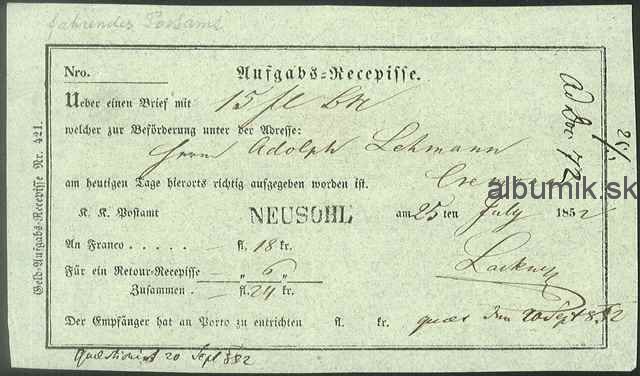 fahrendes Postamt
Nro.
Aufgabs-Recepisse.
Ueber einen Brief mit 15 fl
welcher zur Beförderung unter der Adresse:
Herrn Adolph Lehmann
am heutigen Tage hierorts richtig aufgegeben worden ist.
K. K. Postamt NEUSOHL am 25 ten July 1852
An Franco . . . . . — fl. 18 kr.
Für ein Retour-Recepisse — „ 6 „
Zusammen . — fl. 24 kr.
Der Empfänger hat an Porto zu entrichten fl. kr.
20 Sept 852
20 Sept 852
Geld-Aufgabs-Recepisse Nr. 421.
albumik.sk